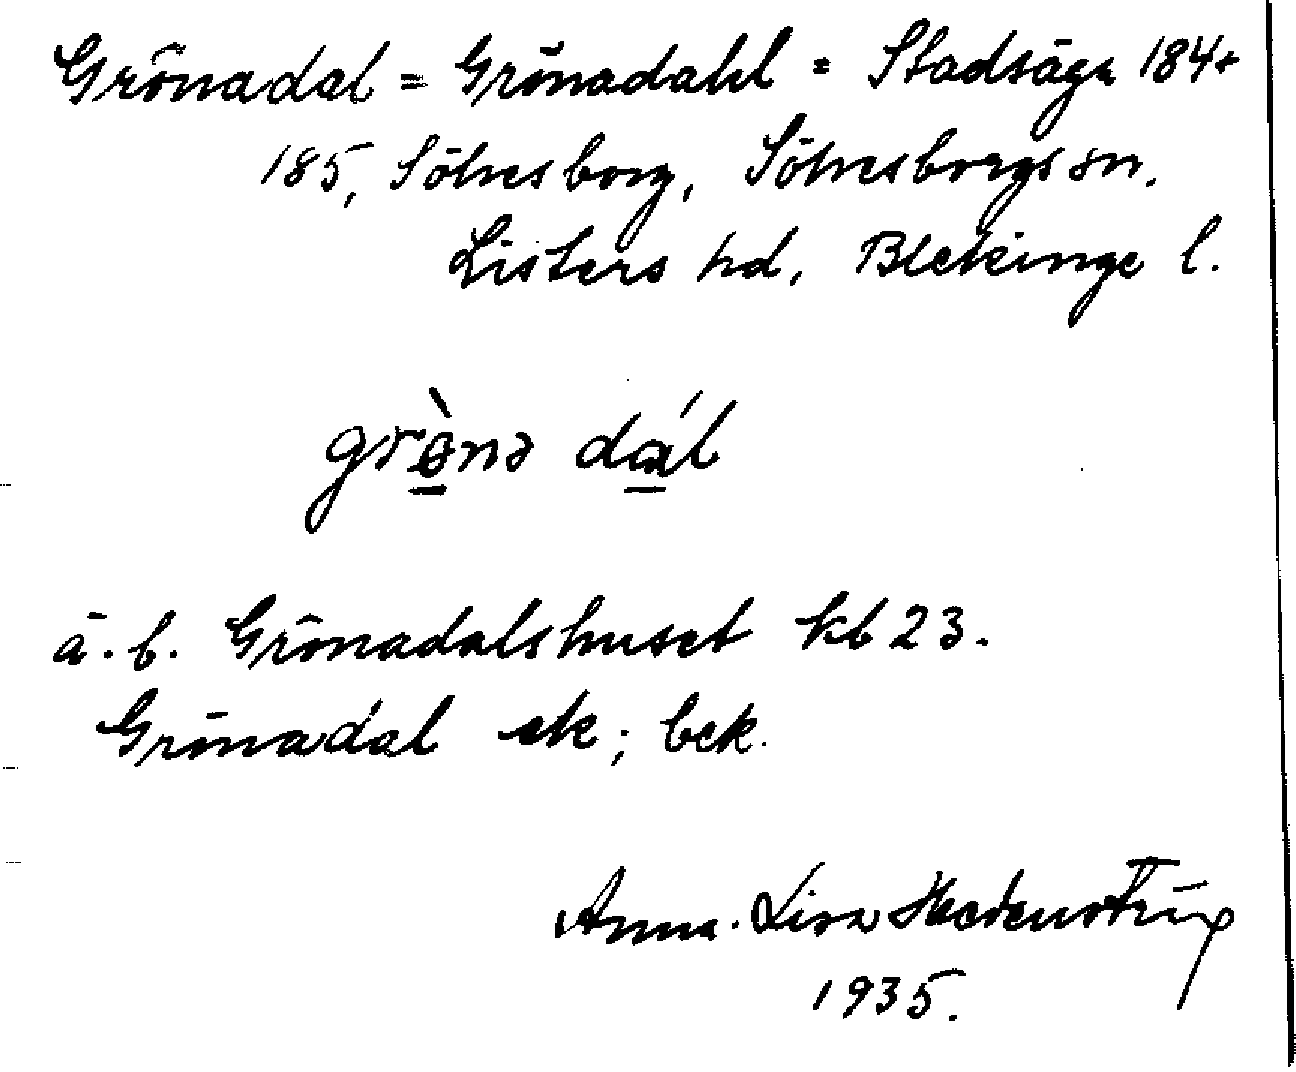 Grönadal = Grönadahl = Stadsäga 184+
185, Sölvesborg, Sölvesborgs sn.
Listers hd, Blekinge l.
grø̀nə dál
ä. b. Grönadalshuset kb 23.
Grönadal ek; bek.
Anna-Lisa
1935.